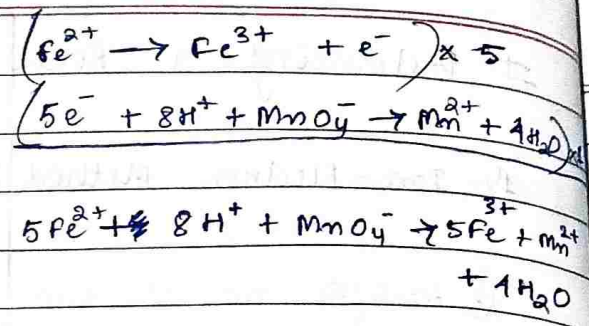 (Fe²⁺ → Fe³⁺ + e⁻) x 5
(5e⁻ + 8H⁺ + MnO₄⁻ → Mn²⁺ + 4H₂O) x1
5Fe²⁺ + 8H⁺ + MnO₄⁻ → 5Fe³⁺ + Mn²⁺
+ 4H₂O